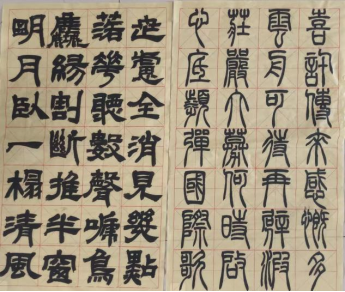 喜訊傳來感慨多
可再
莊嚴大夢何時啟
心底顫彈國際歌
世慮全消見幾點
落花聽數聲啼鳥
塵緣割斷推半窗
明月臥一榻清風